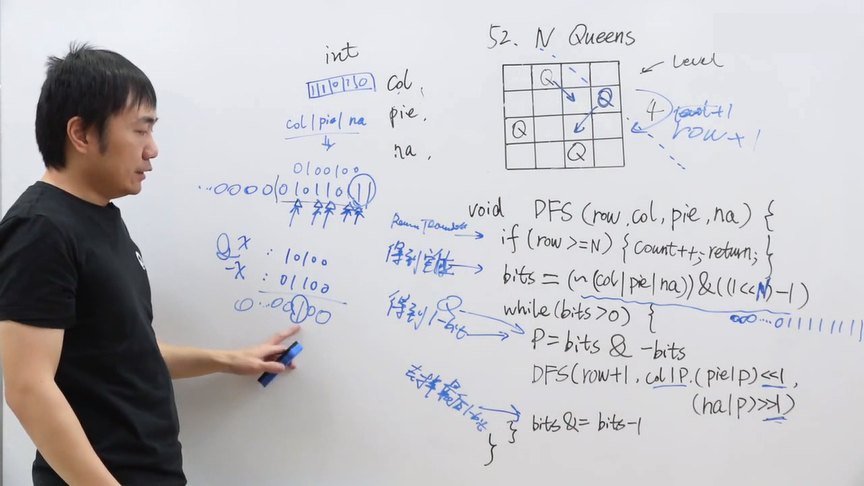 52. N Queens
int
11010 col,
pie,
na,
col|pie|na
Q
Q
Q
Q
Level
4
row+1
0100100
...0000(0101101 1
x : 10100
-x : 01100
0...00100
void DFS (row,col,pie,na) {
if (row>=N) {count++; return;}
得到空位
bits = (~(col|pie|na))&((1<<N)-1)
000...01111111111
得到1-bit
Q
while(bits>0) {
P=bits & -bits
DFS(row+1, col|P, (pie|p)<<1,
(na|p)>>1)
去掉最低1-bit
bits&= bits-1
}
}